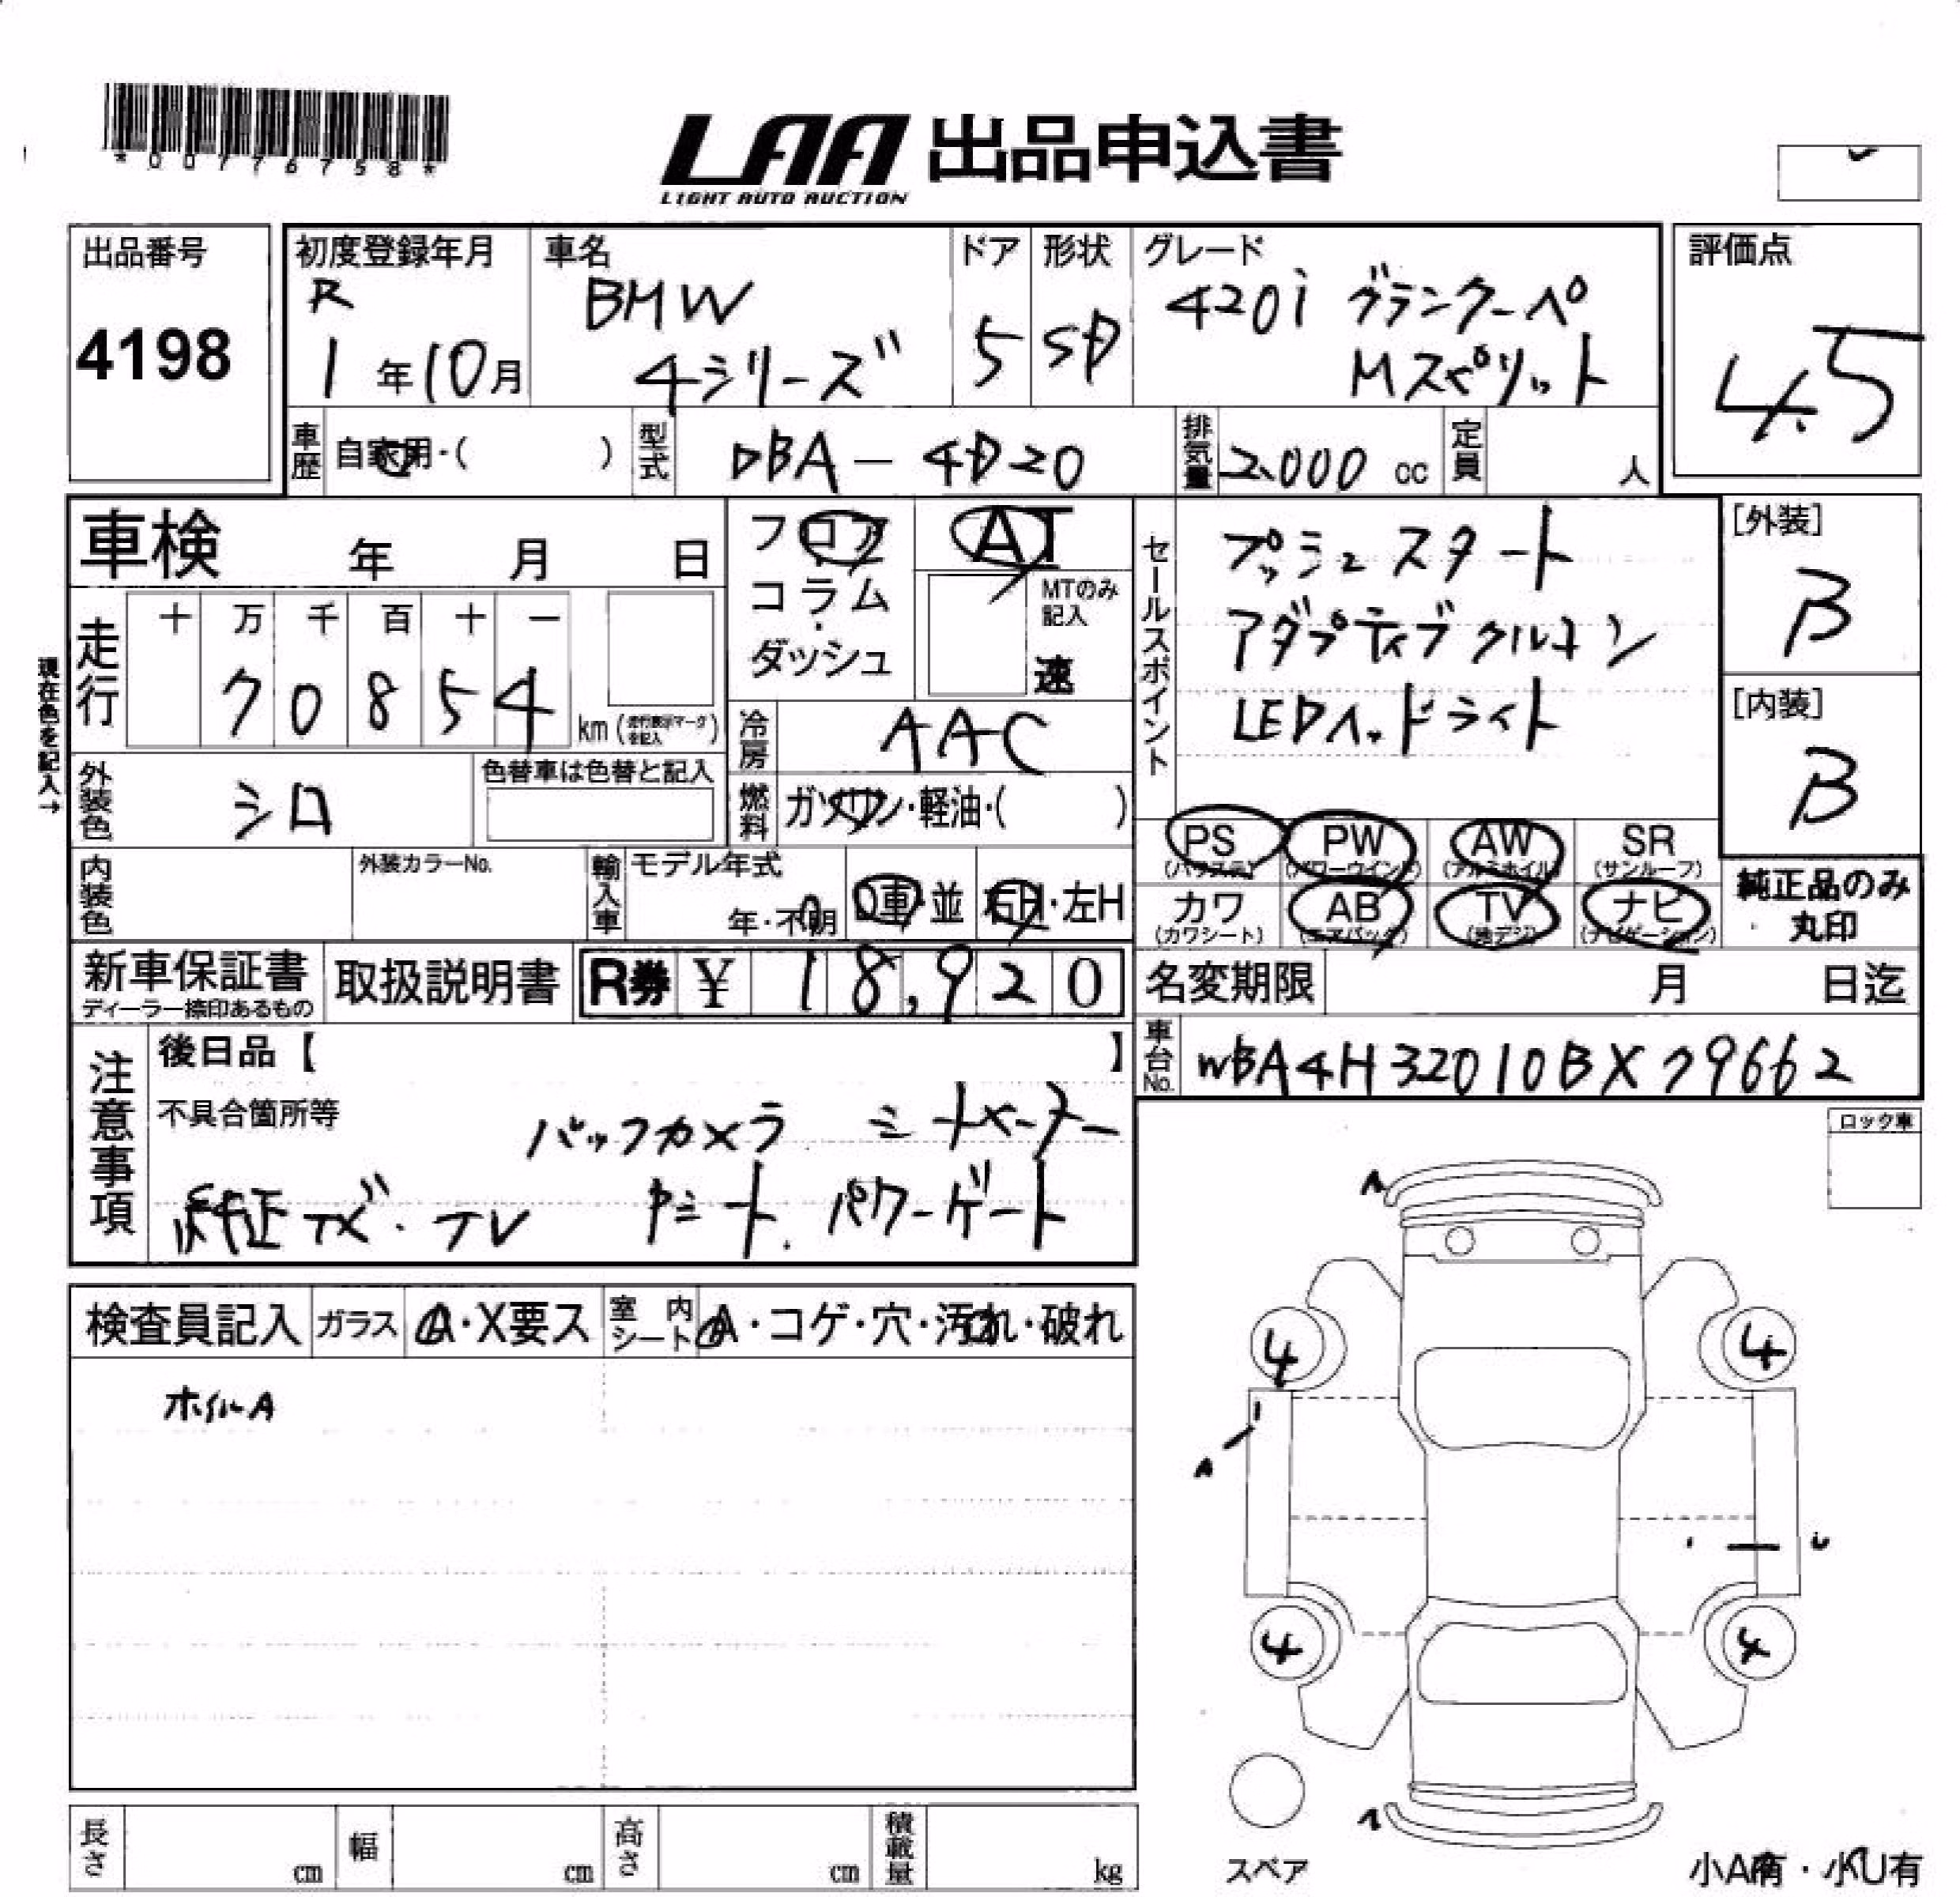 *00776758*
LAA 出品申込書
LIGHT AUTO AUCTION
出品番号
4198
初度登録年月
R
1年10月
車名
BMW
4シリーズ
ドア
5
形状
SD
グレード
420i グランクーペ
Mスポリット
評価点
4.5
車歴 自家用・( )
型式 DBA-4D20
排気量 2.000 cc
定員 人
車検 年 月 日
フロア
コラム
・
ダッシュ
AT
MTのみ
記入
速
セールスポイント
プッシュスタート
アダプティブクルコン
LEDヘッドライト
[外装]
B
[内装]
B
現在色を記入→
走行
十 万 千 百 十 一
7 0 8 5 4
km
冷房 AAC
外装色 シロ
色替車は色替と記入
燃料 ガソリン・軽油・( )
PS PW AW SR
(パワステ) (パワーウインド) (アルミホイル) (サンルーフ)
カワ AB TV ナビ
(カワシート) (エアバック) (地デジ) (ナビゲーション)
純正品のみ
丸印
内装色
外装カラーNo.
輸入車
モデル年式
年・不明
D車・並
右H・左H
新車保証書
ディーラー捺印あるもの
取扱説明書
R券 ¥ 18,920
名変期限 月 日迄
車台No. WBA4H32010BX79662
注意事項
後日品【 】
不具合箇所等
バックカメラ シートメーター
純正ナビ・TV Pシート.パワーゲート
ロック車
検査員記入 ガラス A・X要ス 室内シート A・コゲ・穴・汚れ・破れ
ホイルA
A
4 4
A
U
4 4
A
スペア
小A有・小U有
長さ cm
幅 cm
高さ cm
積載量 kg